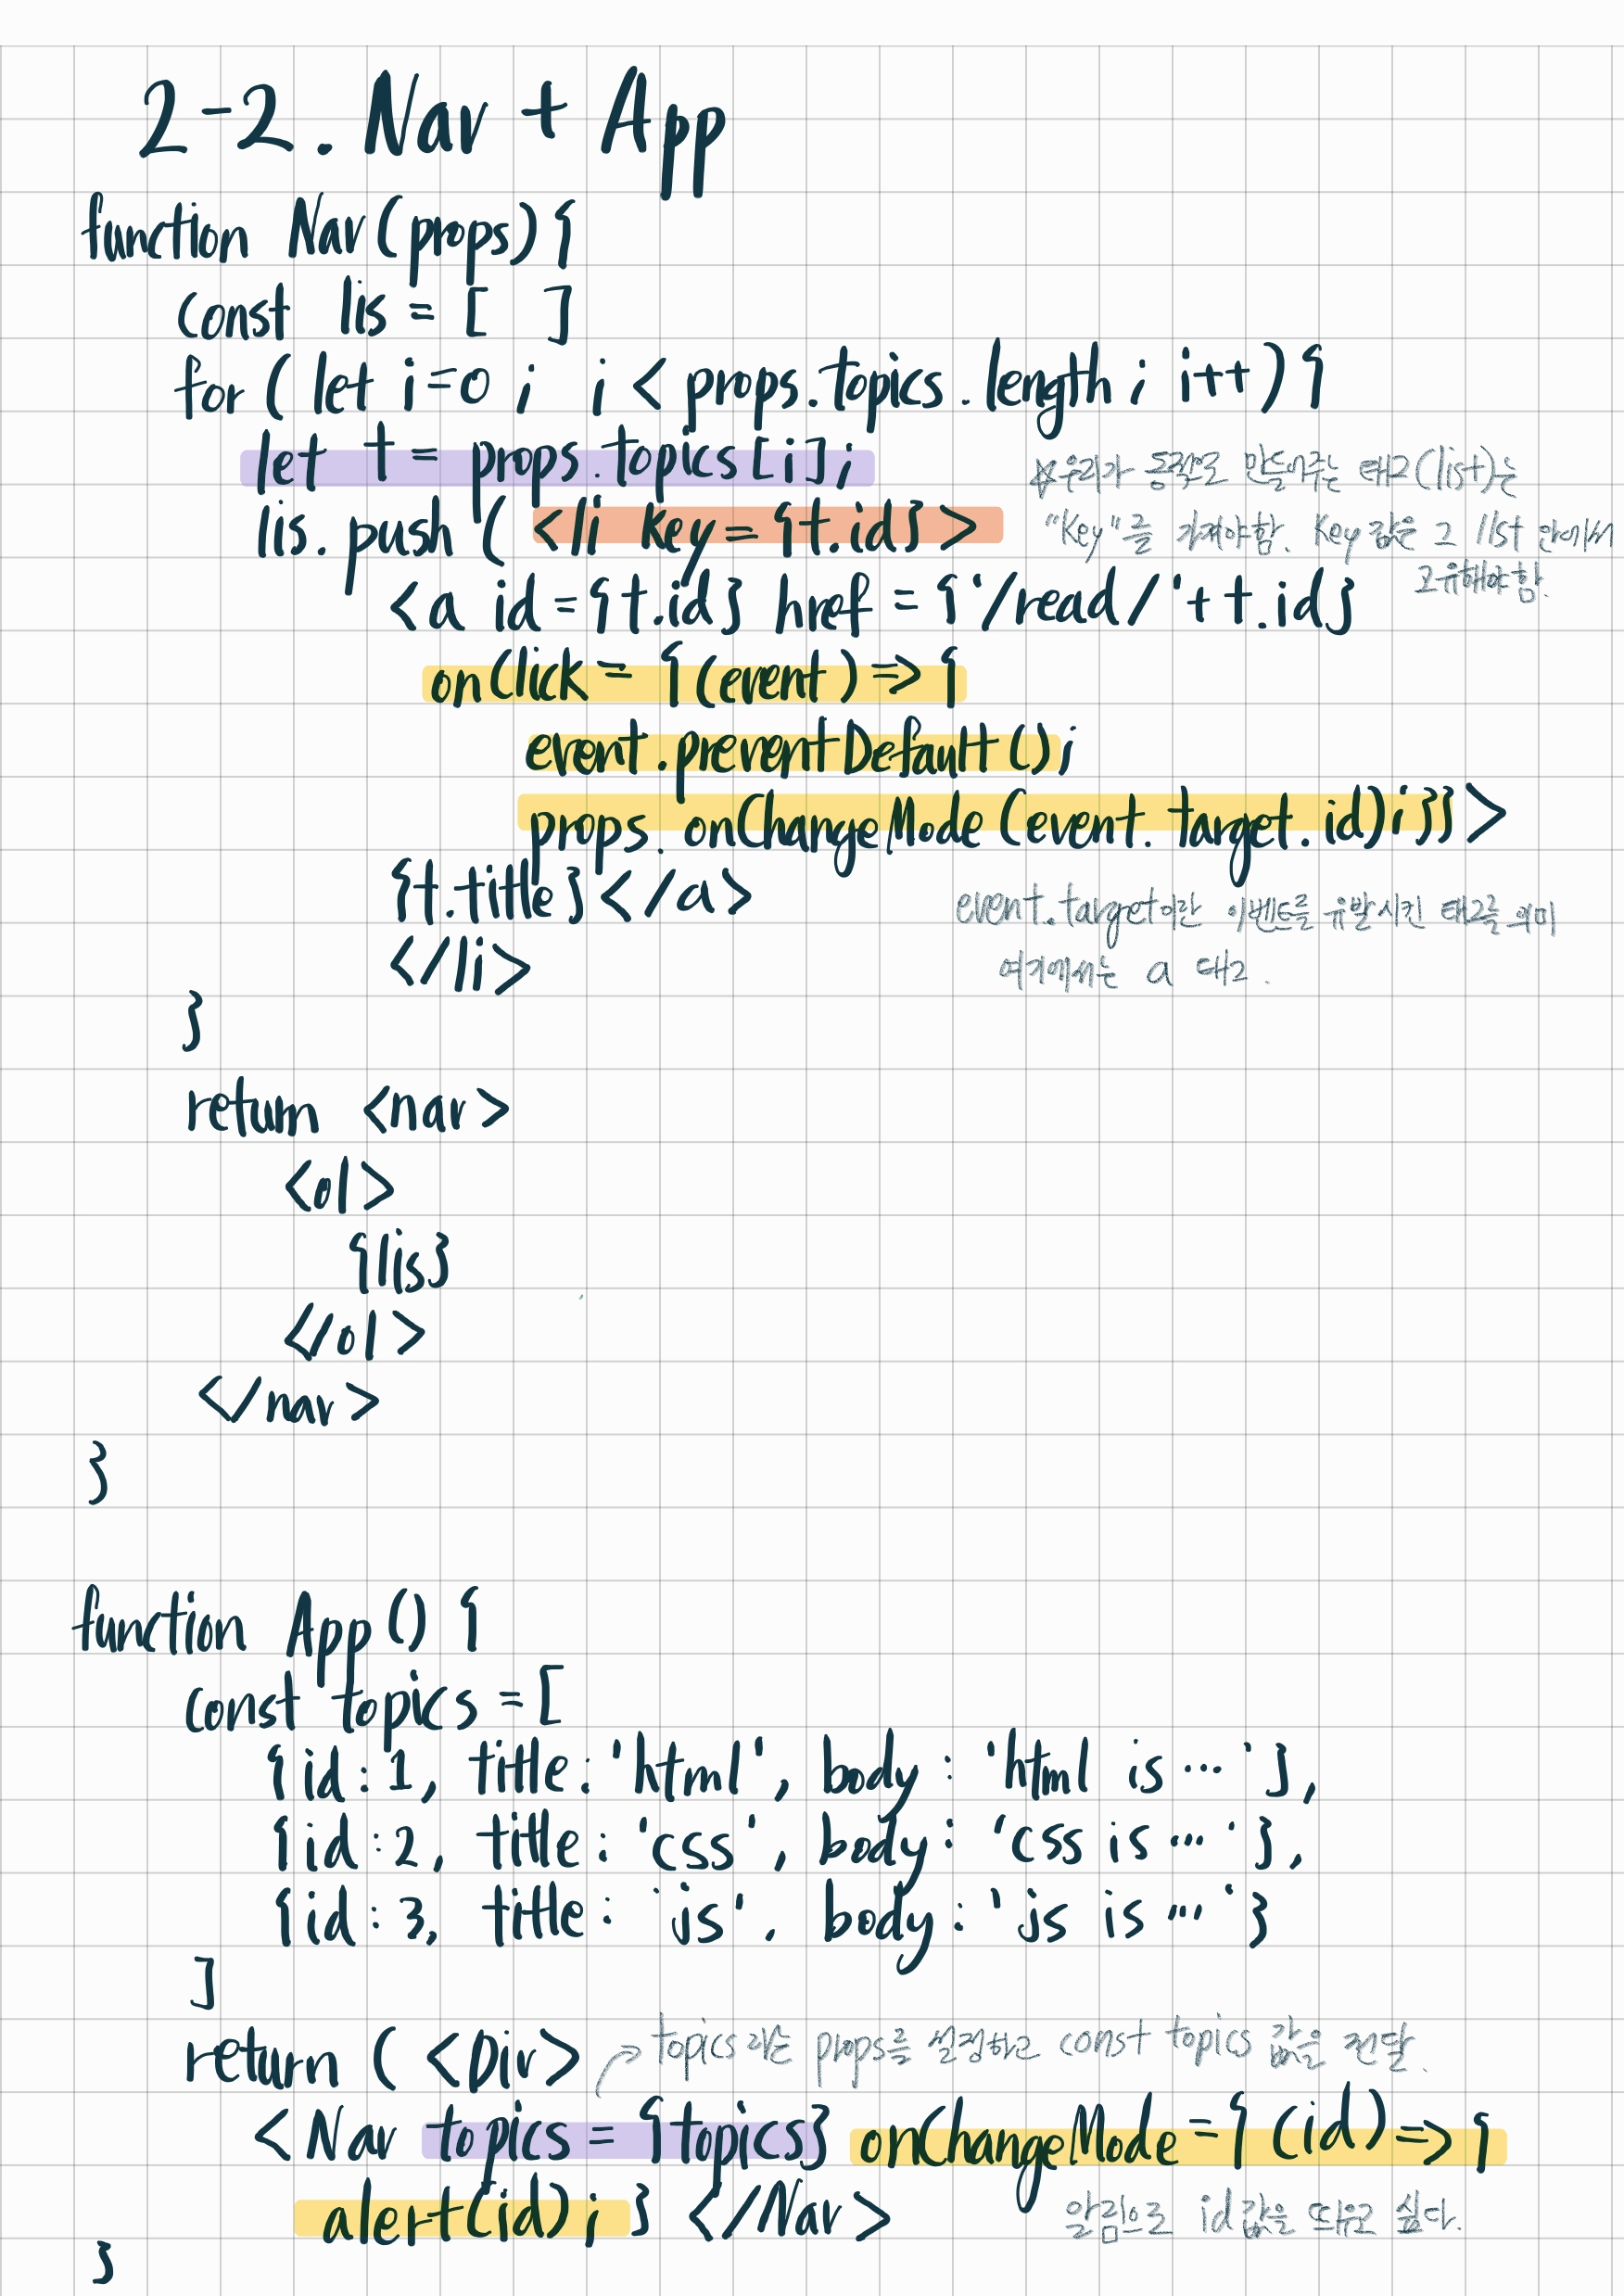 2-2. Nav + App
function Nav(props){
const lis = [ ]
for ( let i=0 ; i < props.topics.length ; i++ ) {
let t = props.topics[i];
☆우리가 동적으로 만들어주는 태그(list)는
lis. push ( <li key = {t.id} >
"key"를 가져야함. key 값은 그 list 안에서
고유해야함.
<a id = {t.id} href = {'/read/'+ t.id}
onClick = {(event) => {
event.preventDefault();
props. onChangeMode (event. target. id);}} >
{t.title} </a>
event.target이란 이벤트를 유발시킨 태그를 의미
여기에서는 a 태그.
</li>
}
return <nav>
<ol>
{lis}
</ol>
</nav>
}
function App () {
const topics = [
{id : 1, title : 'html', body : 'html is ...'},
{id : 2, title : 'css', body : 'css is ...'},
{id : 3, title : 'js', body : 'js is ...'}
]
return ( <Div>
topics 라는 props를 설정하고 const topics 값을 전달.
<Nav topics = {topics} onChangeMode = { (id) => {
alert(id); } </Nav>
알림으로 id값을 띄우고 싶다.
}